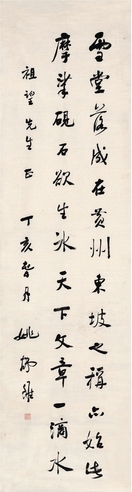 雪堂落成在黄州東坡之稱亦始此
摩挲硯石欲生冰天下文章一滴水
祖望先生正 丁亥春月 姚